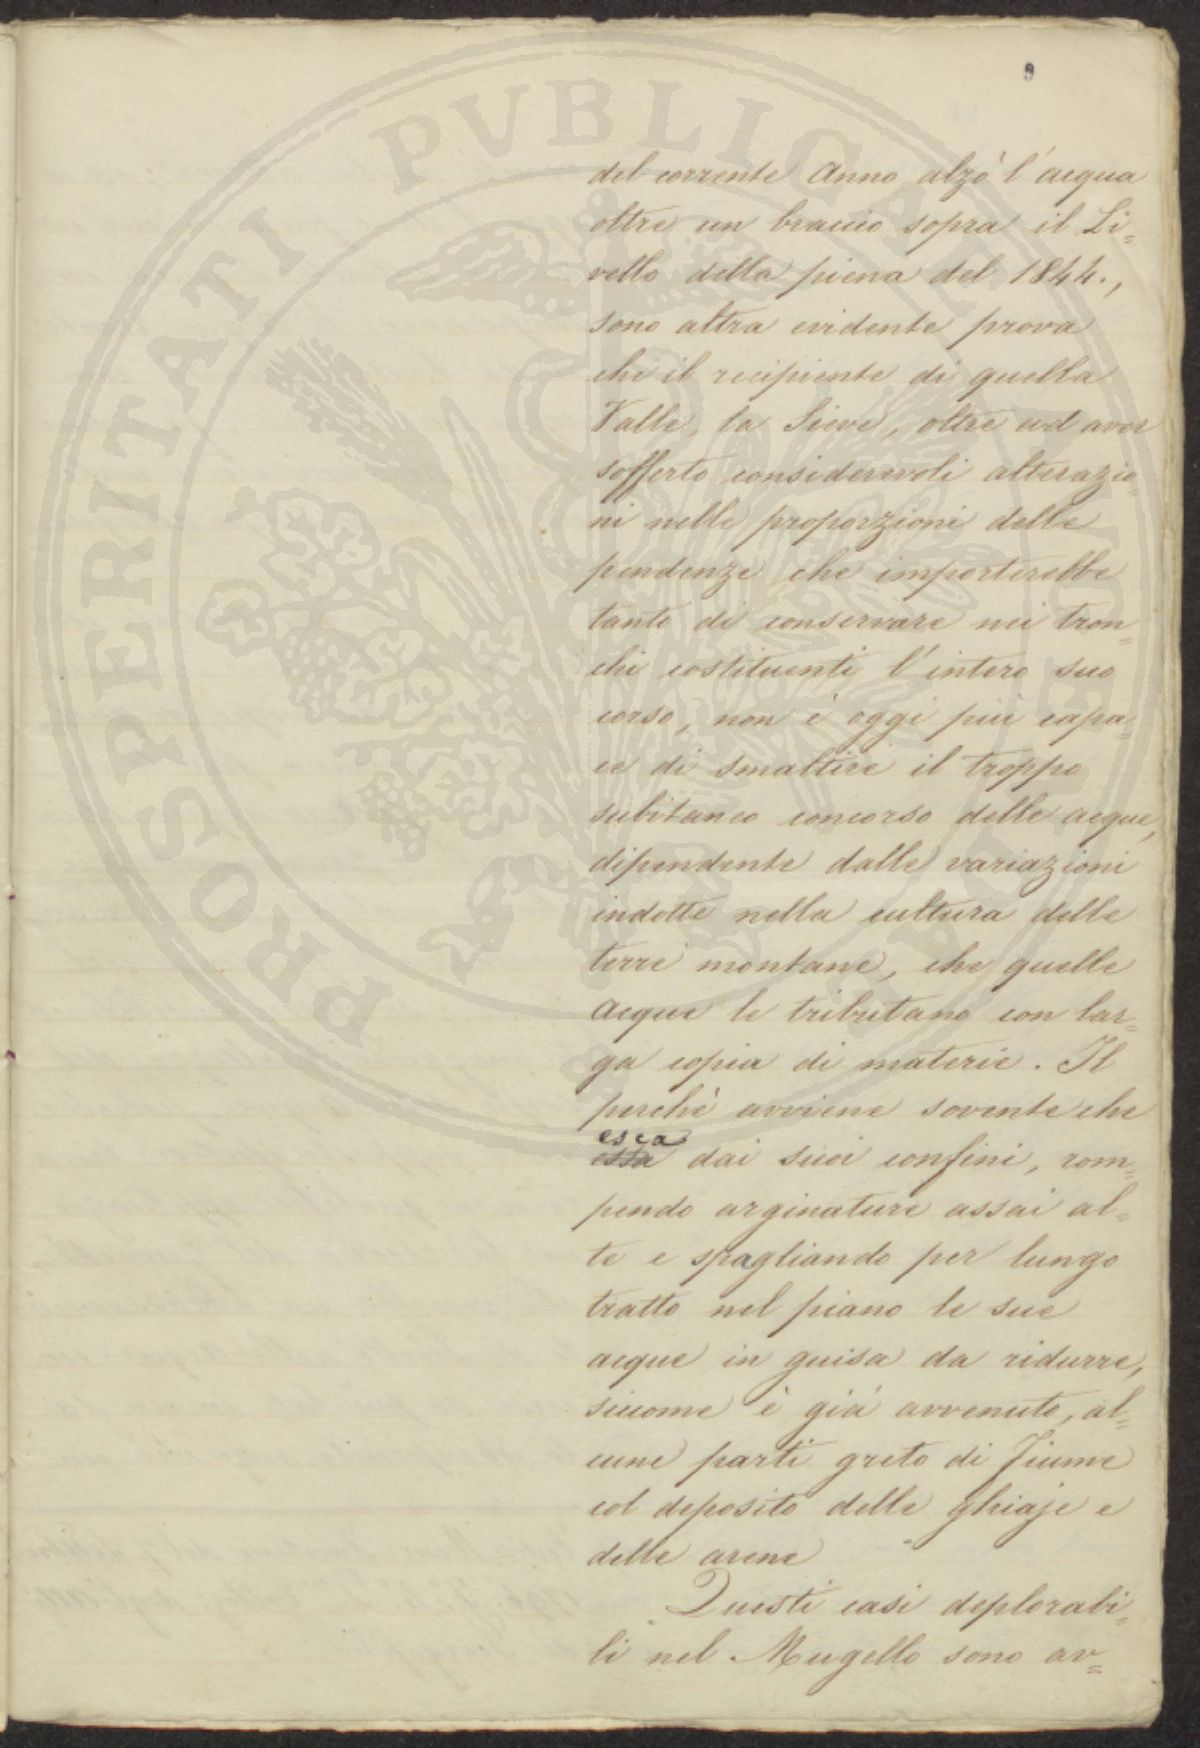 9
del corrente Anno alzò l'acqua
oltre un braccio sopra il Li=
vello della piena del 1844.,
sono altra evidente prova
che il recipiente di quella
Valle, la Sieve, oltre ad aver
sofferto considerevoli alterazio=
ni nelle proporzioni delle
pendenze che importerebbe
tanto di conservare nei tron=
chi costituenti l'intero suo
corso, non è oggi più capa=
ce di smaltire il troppo
subitaneo concorso delle acque,
dipendente dalle variazioni
indotte nella cultura delle
terre montane, che quelle
acque le tributano con lar=
ga copia di materie. Il
perchè avviene sovente che
esca
essa dai suoi confini, rom=
pendo arginature assai al=
te e spagliando per lungo
tratto nel piano le sue
acque in guisa da ridurre,
siccome è già avvenuto, al=
cune parti greto di Fiume
col deposito delle ghiaje e
delle arene
Questi casi deplorabi=
li nel Mugello sono av=
PROSPERITATI PVBLICAE